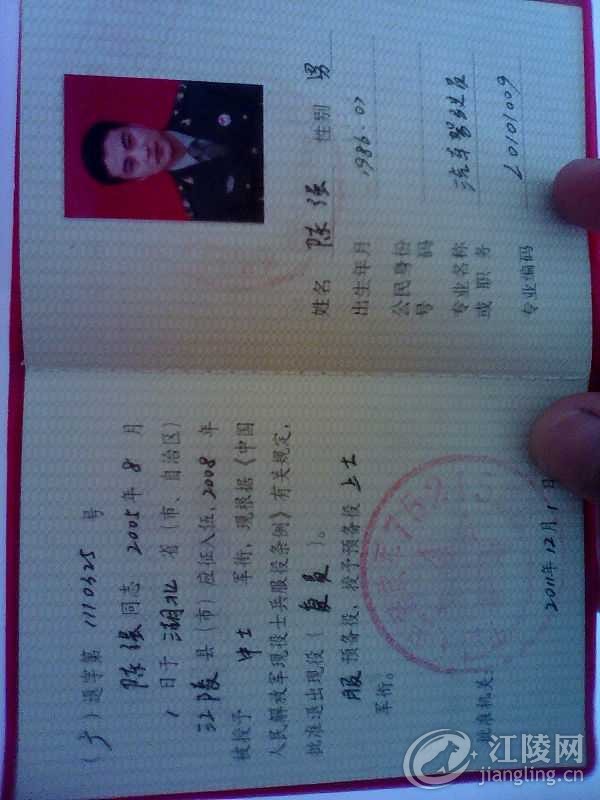 姓名 陈强 性别 男
出生年月 1986.07
公民身份
号 码
专业名称 汽车驾驶员
或职务
专业编码 L0101009
(广)退字第 1110325 号
陈强 同志 2005 年 8 月
1 日于 湖北 省(市、自治区)
江陵 县(市)应征入伍,2008 年
被授予 中士 军衔,现根据《中国
人民解放军现役士兵服役条例》有关规定,
批准退出现役( 复员 )。
服 预备役,授予预备役 上士
军衔。
批准机关:
2011年12月1日
江陵网
jiangling.cn